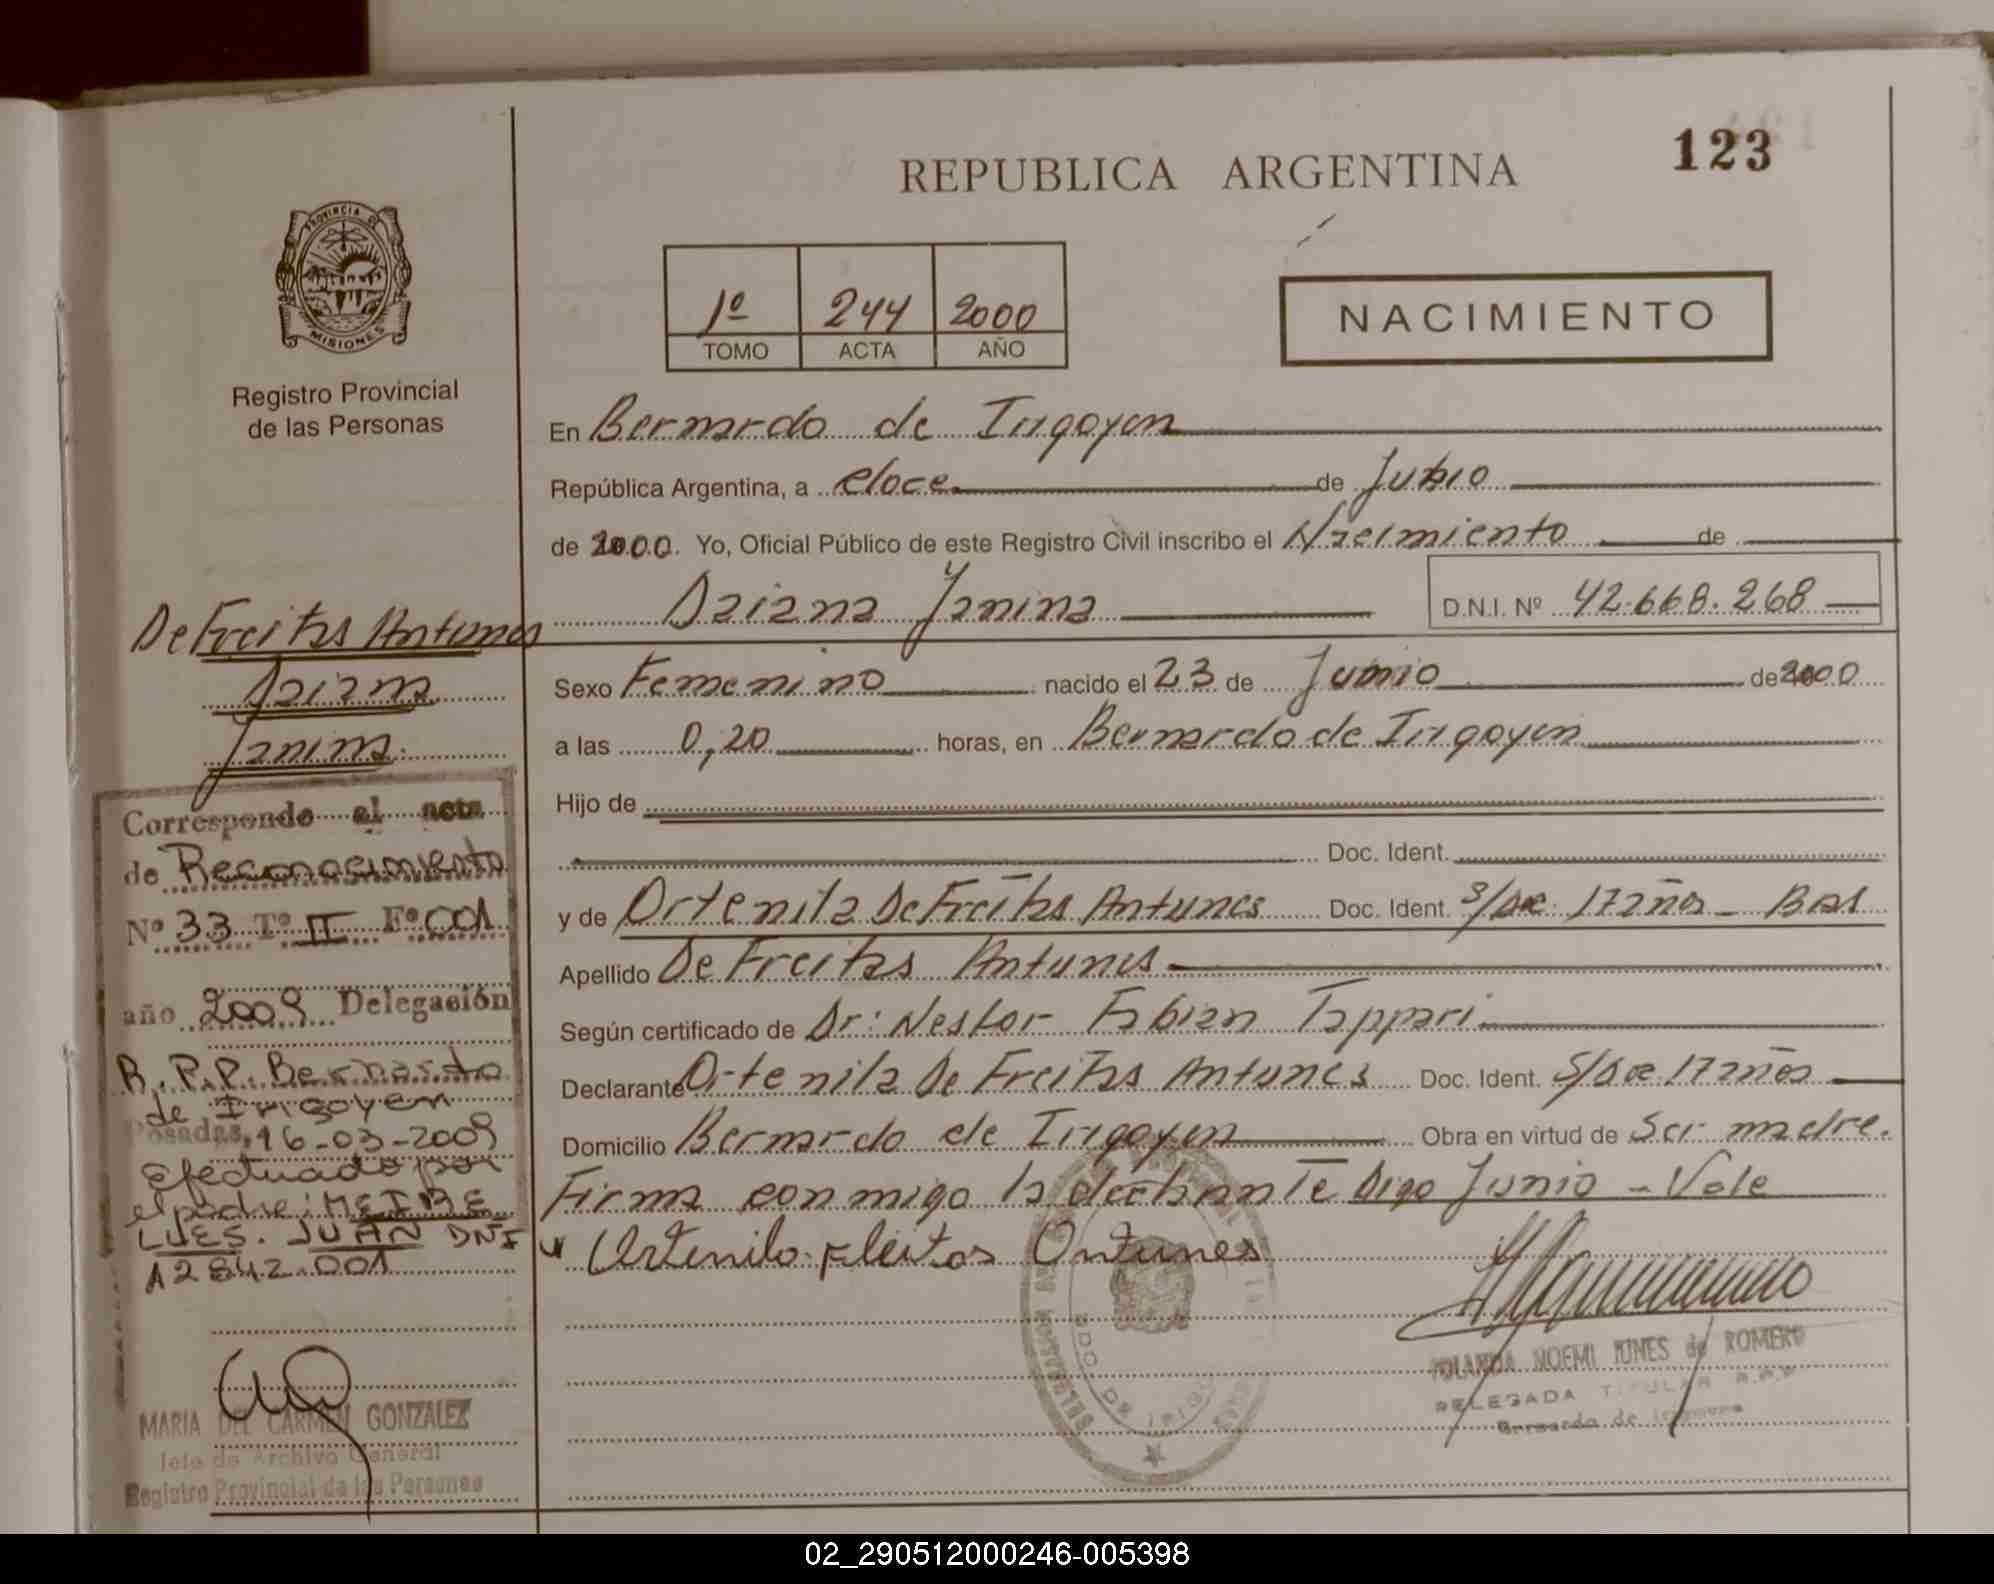 123
REPUBLICA ARGENTINA
PROVINCIA DE
MISIONES
Registro Provincial
de las Personas
1º 244 2000
TOMO ACTA AÑO
NACIMIENTO
En Bernardo de Irigoyen
República Argentina, a doce de Julio
de 2000. Yo, Oficial Público de este Registro Civil inscribo el Nacimiento de
Daiana Janina D.N.I. Nº 42.668.268
Sexo Femenino nacido el 23 de Junio de 2000
a las 0,20 horas, en Bernardo de Irigoyen
Hijo de
Doc. Ident.
y de Ortenila De Freitas Antunes Doc. Ident. S/Doc 17 años - Bras
Apellido De Freitas Antunes
Según certificado de Dr: Nestor Fabian Tappari
Declarante Ortenila De Freitas Antunes Doc. Ident. S/Doc 17 años
Domicilio Bernardo de Irigoyen Obra en virtud de Ser madre.
Firma conmigo la declarante Digo Junio - Vale
Ortenila Fleitas Antunes
YOLANDA NOEMI IUNES de ROMERO
DELEGADA TITULAR R.P.P
Bernardo de Irigoyen
De Freitas Antunes
Daiana
Janina
Corresponde al acta
de Reconocimiento
Nº 33 Tº II Fº 001
año 2009 Delegación
R.P.P. Bernardo
de Irigoyen
Posadas, 16-03-2009
Efectuado por
el padre: MEIRE
LUES. JUAN DNI
12842.001
MARIA DEL CARMEN GONZALEZ
Jefe de Archivo General
Registro Provincial de las Personas
02_290512000246-005398